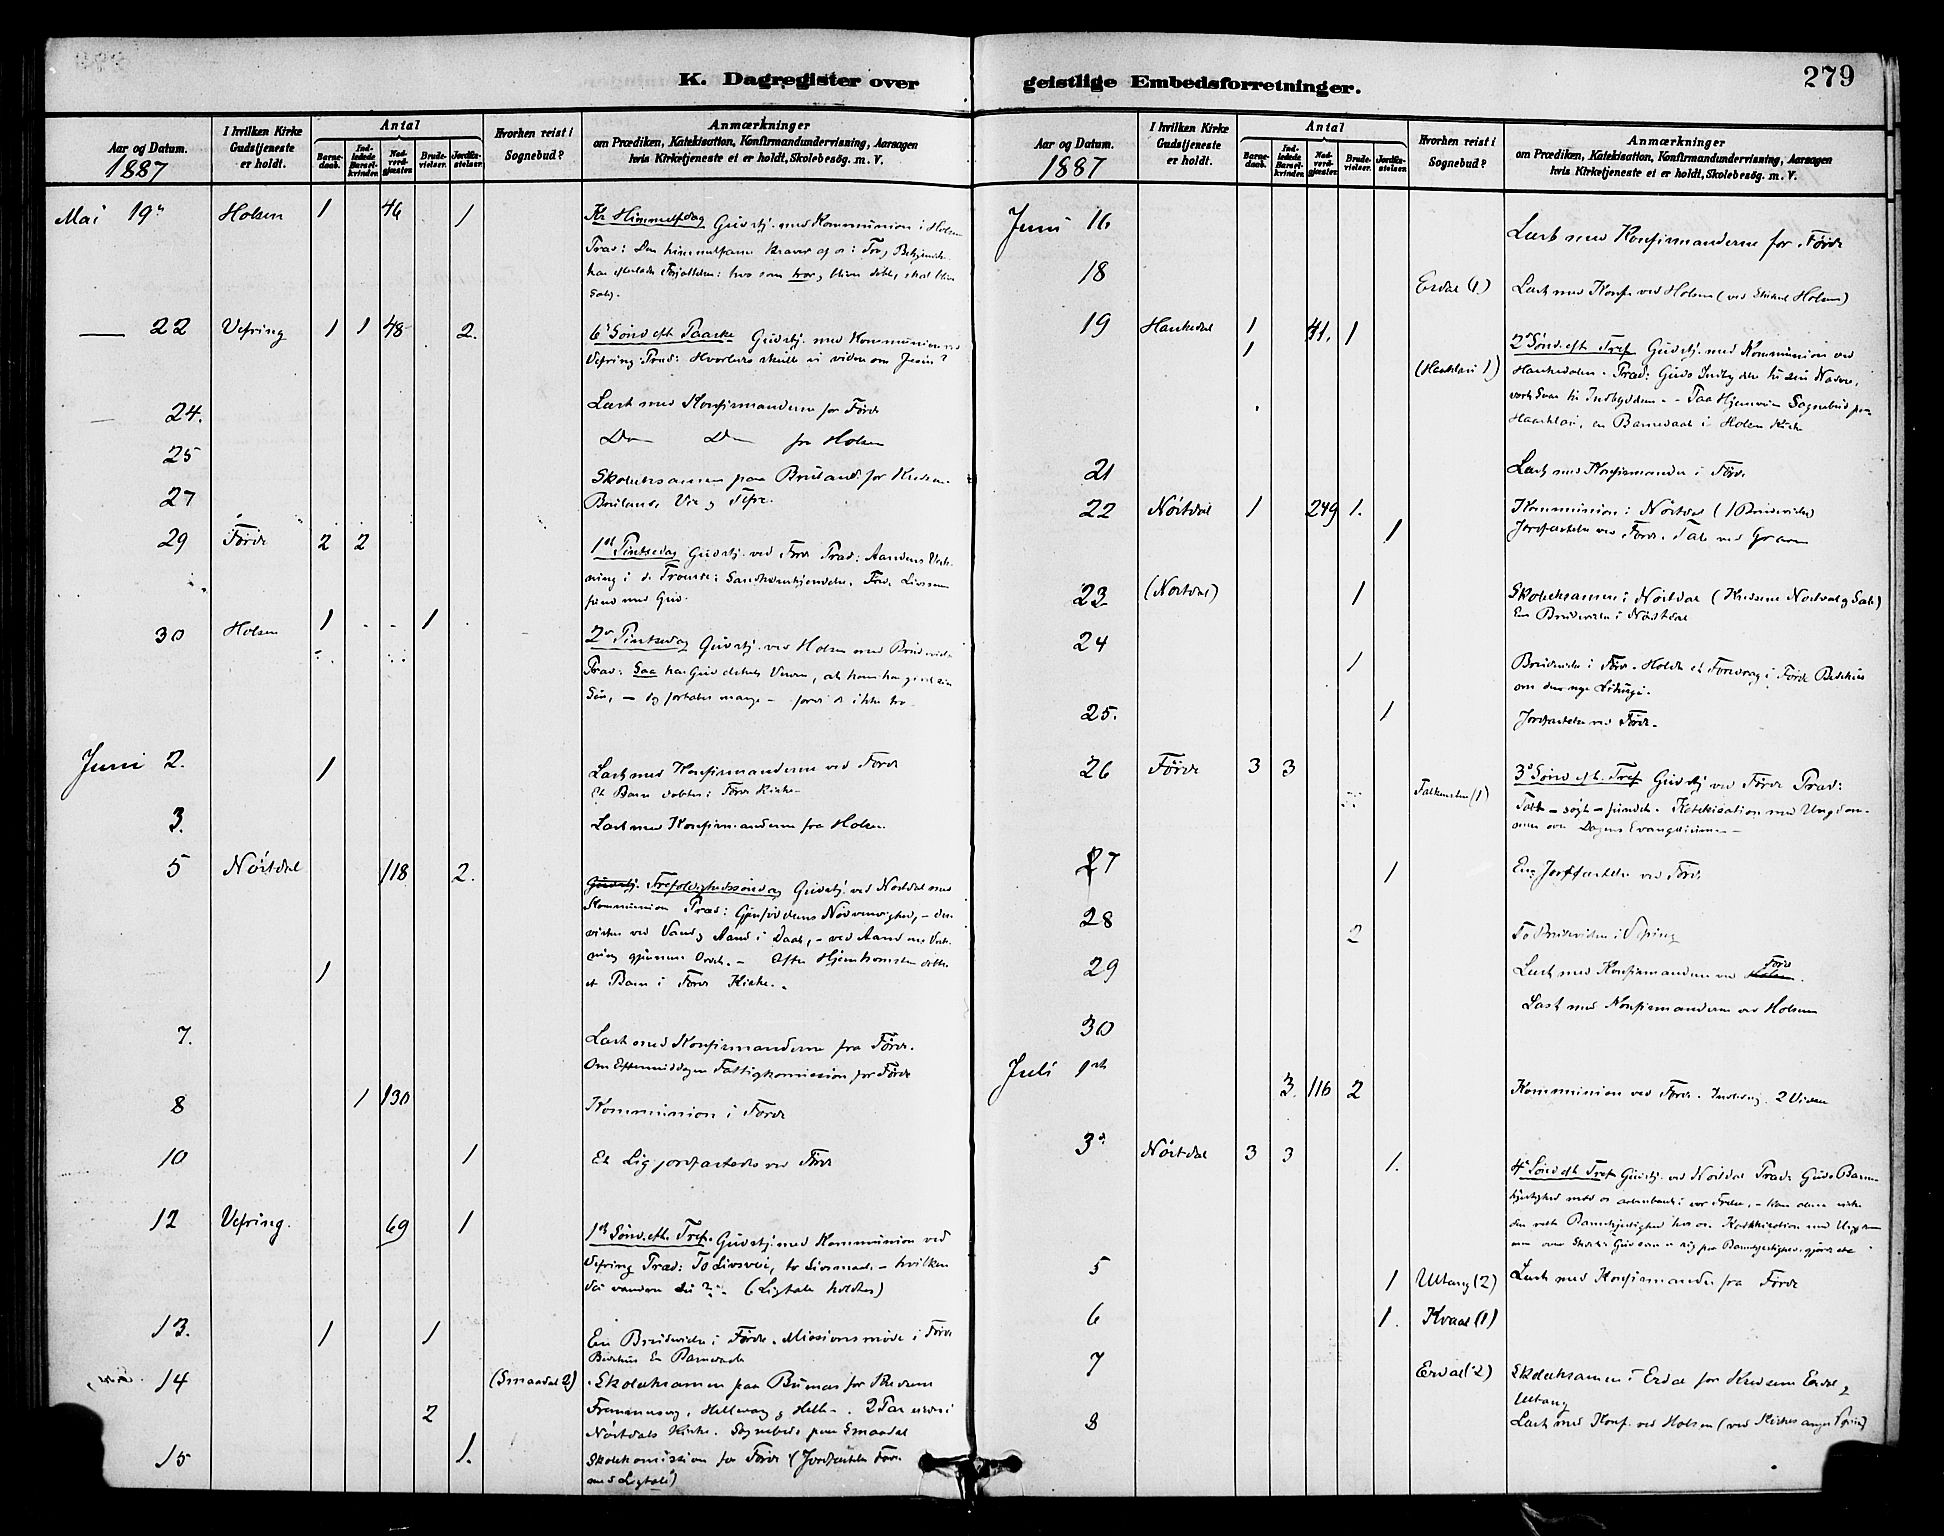 K. Dagregister over geistlige Embedsforretninger.
279
Aar og Datum. 1887
I hvilken Kirke Gudstjeneste er holdt.
Antal
Barnedaab.
Indledede Barselkvinder.
Nadverdgjæster.
Brudevielser.
Jordfæstelser.
Hvorhen reist i Sognebud?
Anmærkninger
om Prædiken, Katekisation, Konfirmandundervisning, Aarsagen
hvis Kirketjeneste ei er holdt, Skolebesøg. m. V.
Mai 19de Holsen 1 46 1 Kr Himmelfdag Gudstj. med Kommunion i Holsen
Præd: Den himmelfarne kræver af os: Tro, Bekjendelse
har efterladt Forjættelsen: hvo som tror, bliver døbt, skal blive
salig.
— 22 Vefring 1 1 48 2. 6te Sønd eft Paaske Gudstj. med Kommunion ved
Vefring. Præd: Hvorledes skulle vi vidne om Jesus?
— 24. Læst med Konfirmanderne for Førde
25 Do Do fra Holsen
27 Skoleeksamen paa Bruland for Kredsene
Bruland, Vie og Tefre.
29 Førde 2 2 1ste Pintsedag Gudstj. ved Førde Præd: Aandens Virkning
i de Troende: Sandhedserkjendelse. Fred. Livssamfund
med Gud.
30 Holsen 1 1 2den Pintsedag Gudstj. ved Holsen med Brudevielse
Præd: Saa har Gud elsket Verden, at han har givet sin
Søn, — dog fortabes mange — fordi de ikke tro
Juni 2. 1 Læst med Konfirmanderne ved Førde
Et Barn døbtes i Førde Kirke
3. Læst med Konfirmanderne fra Holsen.
5 Nøstdal 118 2. Gudstj. Trefoldighedssøndag Gudstj. ved Nøstdal med
Kommunion Præd: Gjenfødelsens Nødvendighed, — den
virkes ved Vand og Aand i Daab, — ved Aandens Virkning
gjennem Ordet. — Efter Hjemkomsten døbtes
1 et Barn i Førde Kirke.
7. Læst med Konfirmanderne fra Førde.
Om Eftermiddagen Fattigkomission for Førde
8 1 130 Kommunion i Førde
10 1 Et Lig jordfæstedes ved Førde
12 Vefring. 69 1 1ste Sønd. eft. Tref. Gudstj. med Kommunion ved
Vefring Præd: To Livsveie, to Livsmaal. — hvilken
Vei vandrer du? (Ligtale holdtes)
13. 1 1 En Brudevielse i Førde. Missionsmøde i Førde
Bedehus En Barnedaab
14 (Smaadal 2) Skoleeksamen paa Bumas for Kredsene
2 Hellevang og Helle. 2 Par viedes i
Nøstdals Kirke. Sognebud paa Smaadal
15 1. Skolekomission for Førde (Jordfæstelse Førde
med Ligtale)
Aar og Datum. 1887
I hvilken Kirke Gudstjeneste er holdt.
Antal
Barnedaab.
Indledede Barselkvinder.
Nadverdgjæster.
Brudevielser.
Jordfæstelser.
Hvorhen reist i Sognebud?
Anmærkninger
om Prædiken, Katekisation, Konfirmandundervisning, Aarsagen
hvis Kirketjeneste ei er holdt, Skolebesøg. m. V.
Juni 16 Læst med Konfirmanderne for Førde
18 Erdal (1.) Læst med Konf. ved Holsen (ved Holsen)
19 Haukedal 1 41. 1 2den Sønd. eft Tref Gudstj. med Kommunion ved
1 (Haaklæi 1) Haukedalen. Præd: Guds Indbydelse til sin Nadver,
vort Svar til Indbydelsen. — Paa Hjemveien Sognebud paa
Haaklæi, en Barnedaab i Holsen Kirke
21 Læst med Konfirmander i Førde
22 Nøstdal 1 249 1. Kommunion i Nøstdal (1 Brudevielse)
1 Jordfæstelse ved Førde. Tale ved Graven
23 (Nøstdal) 1 Skoleeksamen i Nøstdal (Kredsene Nøstdal og Sale)
En Brudevielse i Nøstdal
24 1 Brudevielse i Førde. Holdt et Foredrag i Førde Bedehus
om den nye Liturgi.
25. 1 Jordfæstelse ved Førde.
26 Førde 3 3 3die Sønd eft. Tref Gudstj ved Førde Præd:
Falkensten (1) Tabt — søgt — funden. Katekisation med Ungdommen
over Dagens Evangelium —
27 1 En Jordfæstelse ved Førde
28 2 To Brudevielser i Vefring
29 Læst med Konfirmanderne ved Holsen Førde.
30 Læst med Konfirmanderne ved Holsen
Juli 1ste 3. 116 2 Kommunion ved Førde. Indledning. 2 Vielser
3die Nøstdal 3 3 1. 4de Sønd eft Tref Gudstj. ved Nøstdal Præd: Guds Barmhjertighed
med os aabenbaret i vor Frelse, — kan alene virke
den rette Barmhjertighed hos os. Katekisation med Ungdommen
5 1 Utang (2) Læst med Konfirmander fra Førde
6 1. Kvaal (1)
7 Erdal (2) Skoleeksamen i Erdal for Kredsene Erdal og
Utang
8 Læst med Konf. ved Holsen (ved Kirkesanger)